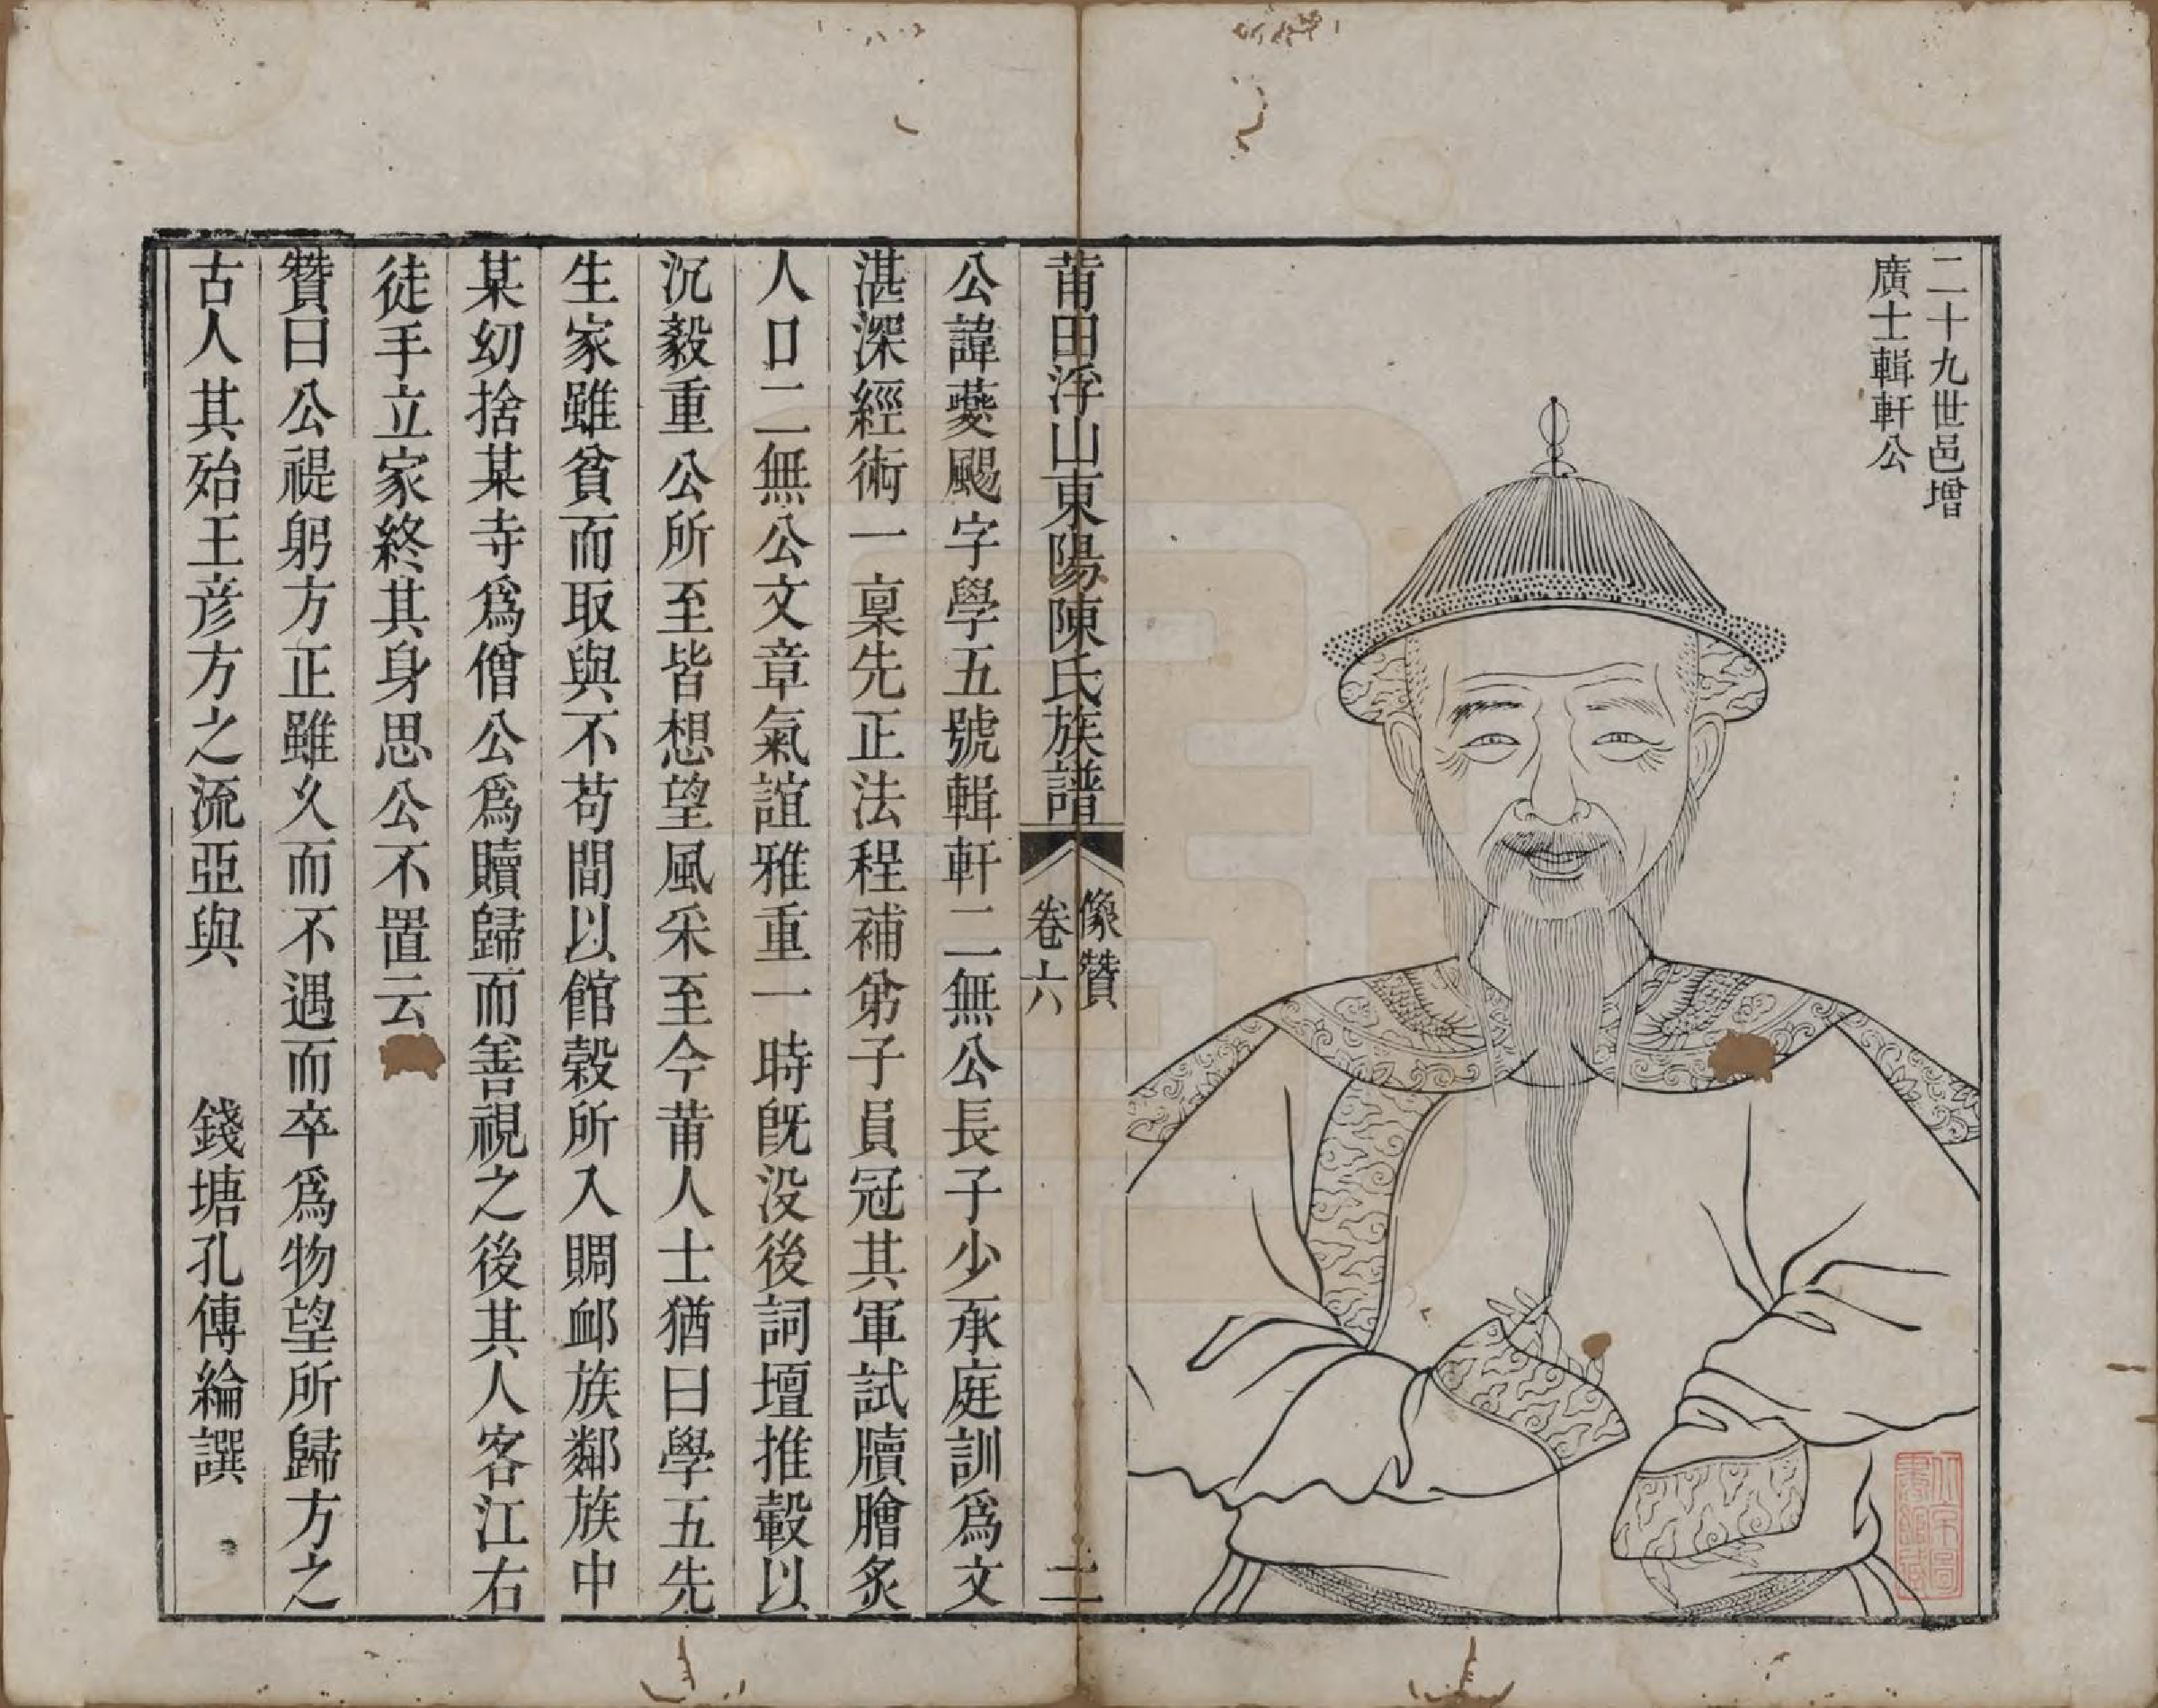 二十九世邑增
廣士輯軒公
莆田浮山東陽陳氏族譜
像贊
卷六
二
公諱夔颺字學五號輯軒二無公長子少承庭訓爲文
湛深經術一稟先正法程補弟子員冠其軍試牘膾炙
人口二無公文章氣誼雅重一時旣没後詞壇推轂以
沉毅重公所至皆想望風采至今莆人士猶曰學五先
生家雖貧而取與不苟間以館穀所入賙卹族鄰族中
某幼捨某寺爲僧公爲贖歸而善視之後其人客江右
徒手立家終其身思公不置云
贊曰公禔躬方正雖久而不遇而卒爲物望所歸方之
古人其殆王彥方之流亞與 錢塘孔傳綸譔